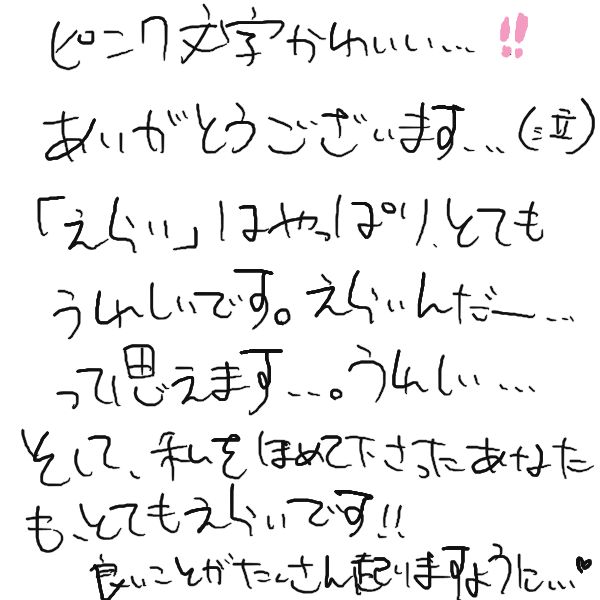 ピンク文字かわいい…!!
ありがとうございます…(泣)
「えらい」はやっぱり、とても
うれしいです。えらいんだー…
って思えます…。うれしい…
そして、私をほめて下さったあなた
も、とてもえらいです!!
良いことがたくさん起りますように…♥